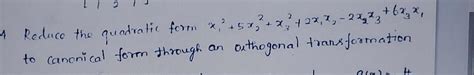 [ 1 3 1 ]
1 Reduce the quadratic form x₁² + 5x₂² + x₃² + 2x₁x₂ - 2x₂x₃ + 6x₃x₁
to canonical form through an outhogonal transformation